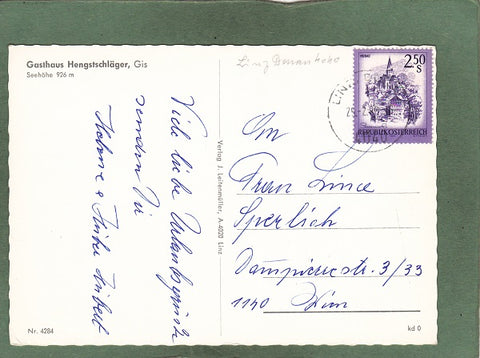 Gasthaus Hengstschläger, Gis
Seehöhe 926 m
Viele liebe Urlaubsgrüße
senden Dir
Verlag J. Leitenmüller, A 4020 Linz
Linz
2.50
S
REPUBLIK ÖSTERREICH
LINZ
An
Frau
Sperlich
Dampierrestr. 3/33
1140 Wien
Nr. 4284
kd 0